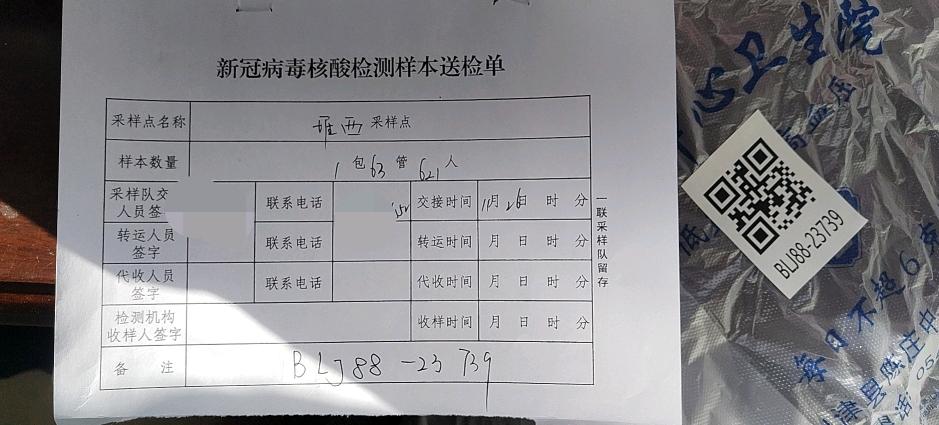 新冠病毒核酸检测样本送检单
采样点名称 堆西 采样点
样本数量 1 包 63 管 621 人
采样队交 联系电话 交接时间 11月 26日 时 分
人员签
转运人员 联系电话 转运时间 月 日 时 分
签字
代收人员 联系电话 代收时间 月 日 时 分
签字
检测机构 收样时间 月 日 时 分
收样人签字
备 注 BLJ88-23739
一联采样队留存
心卫生院
高血压
BLJ88-23739
每日不超6克
县陈庄中
电话:05